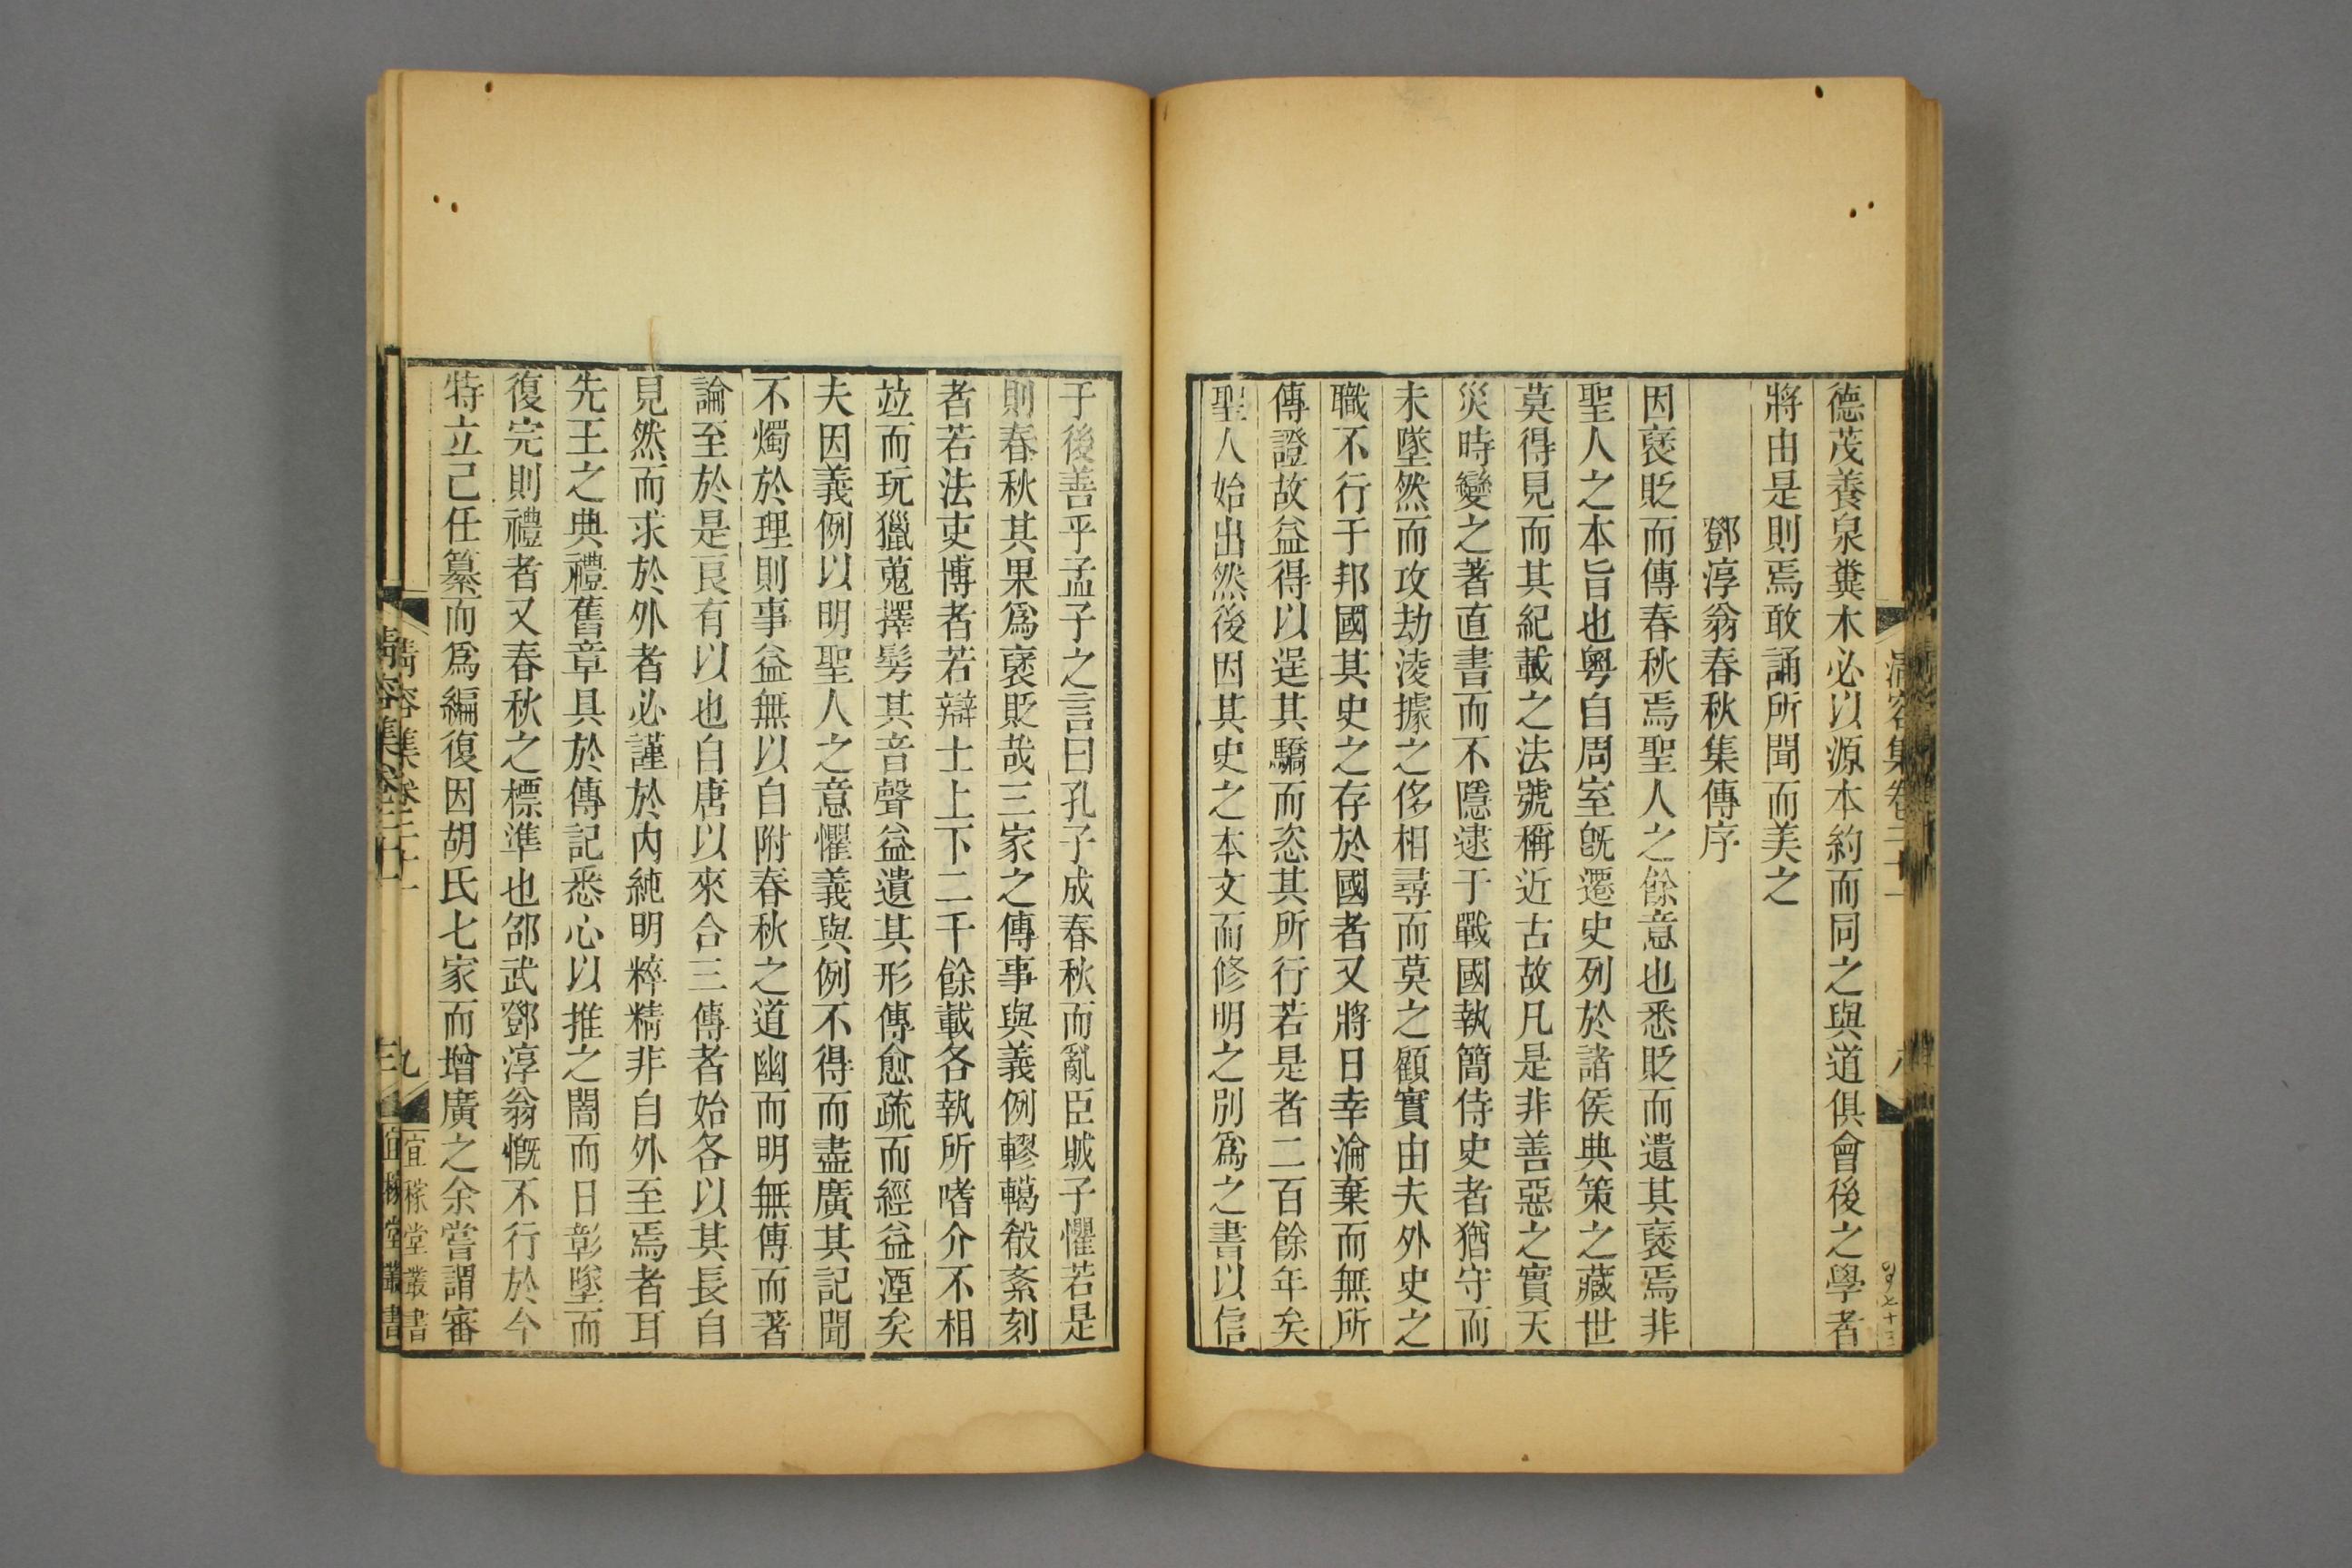 德茂養泉糞木必以源本約而同之與道俱會後之學者
將由是則焉敢誦所聞而美之
鄧淳翁春秋集傳序
因褒貶而傳春秋焉聖人之餘意也悉貶而遺其褒焉非
聖人之本旨也粵自周室既遷史列於諸侯典策之藏世
莫得見而其紀載之法號稱近古故凡是非善惡之實天
災時變之著直書而不隱逮于戰國執簡侍史者猶守而
未墜然而攻劫淩據之侈相尋而莫之顧實由夫外史之
職不行于邦國其史之存於國者又將日幸淪棄而無所
傳證故益得以逞其驕而恣其所行若是者二百餘年矣
聖人始出然後因其史之本文而修明之別爲之書以信
于後善乎孟子之言曰孔子成春秋而亂臣賊子懼若是
則春秋其果爲褒貶哉三家之傳事與義例轇轕殽紊刻
者若法吏博者若辯士上下二千餘載各執所嗜介不相
竝而玩獵蒐擇髣其音聲益遺其形傳愈疏而經益湮矣
夫因義例以明聖人之意懼義與例不得而盡廣其記聞
不燭於理則事益無以自附春秋之道幽而明無傳而著
論至於是良有以也自唐以來合三傳者始各以其長自
見然而求於外者必謹於內純明粹精非自外至焉者耳
先王之典禮舊章具於傳記悉心以推之闇而日彰墜而
復完則禮者又春秋之標準也邵武鄧淳翁慨不行於今
特立己任纂而爲編復因胡氏七家而增廣之余嘗謂審
清容集卷二十一
九
宜稼堂叢書